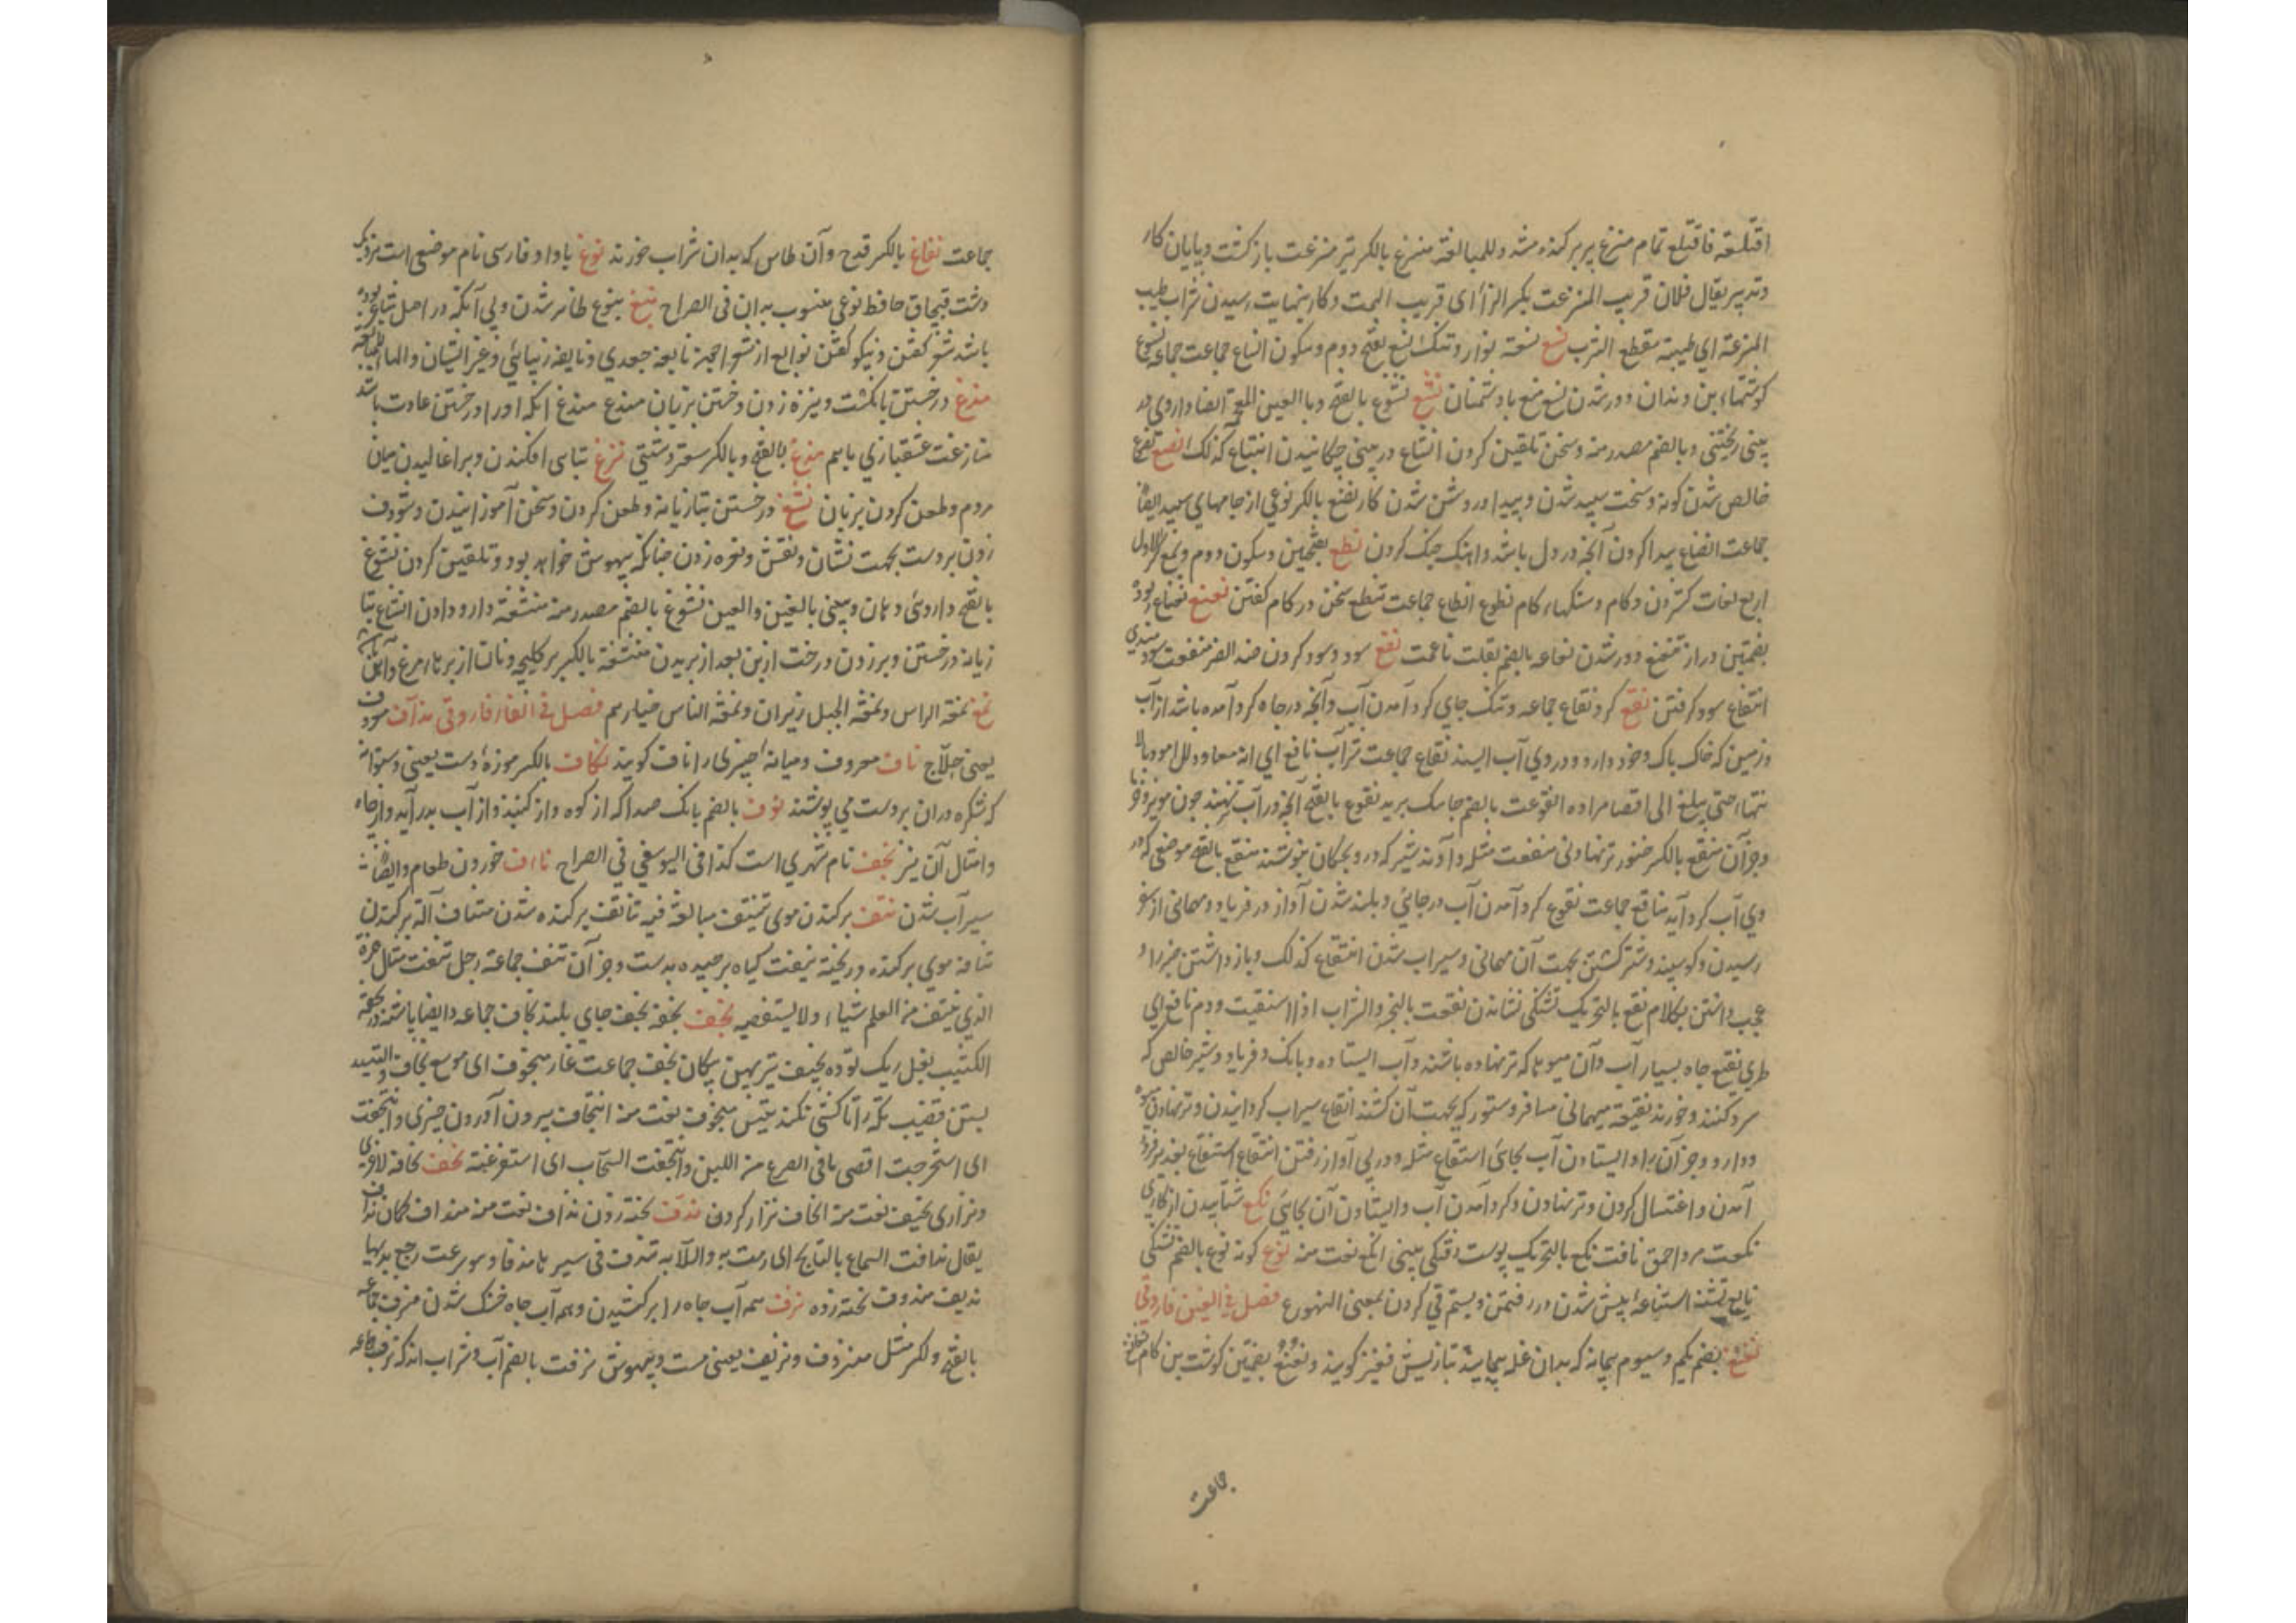 اقتلعته فاقتلع تمام منزع پر بر کنده شد وللمبالغة منزع بالکسر تیر منزعت باز کشت و پایان کار
وتدبیر یقال فلان قریب المنزعت بکسر الزاء ای قریب الهمت و کار بنهایت رسیدن شراب طیب
المنزعة ای طیبة مقطع الشرب نسع نسعة نوار و تنک نسع بفتح دوم وسکون النساع جماعت جماعه نسوع
کوشتهاء بن دندان و دور شدن نسع منع باد شمنان نشع نشوع بالفتح وبا العین المعجمة ایضا داروی در
بینی ریختنی وبالضم مصدر منه وسخن تلقین کردن انشاع در بینی چکانیدن انتشاع کذلک نصع نصع
خالص شدن کونه وسخت سپید شدن و پیدا و روشن شدن کار نصع بالکسر نوعی از جامهای سپید ایضا
جماعت انصاع پیدا کردن آنچه در دل باشد و آهنک جنک کردن نطع بفتحتین وسکون دوم
اربع لغات کستردن و کام وشکنهاء کام نطوع انطاع جماعت تنطع سخن در کام کفتن نعنع نعناع پودنه
بضمتین دراز تنعنع دور شدن نعاعه بالضم بقلت ناعمت نفع سود وسود کردن ضد الضر منفعت سودمندی
انتفاع سود کرفتن نقع کرد نقاع جماعه و تنک جای کرد آمدن آب و آنچه در چاه کرد آمده باشد از آب
وزمین که خاک پاک وخود دارد و در وی آب ایستد نقاع جماعت شراب نافع
حتی یبلغ الی اقصا مراده انقوعت بالضم نقوع بالفتح آنچه در آب نهند چون مویز و خرما
وجز آن منقع بالکسر تر نهادنی منقعت مثله و آوند شیر که در و بچکان بنوشند منقع بالفتح موضعی که در
وی آب کرد آید مناقع جماعت نقوع کرد آمدن آب در جائی و بلند شدن آواز در فریاد ومهمانی از سفر
رسیدن وکوسپند و شتر کشتن بجهت آن مهمانی و سیراب شدن انتقاع کذلک و باز داشتن خبر را و
عجب داشتن بکلام نقع بالتحریک تشنکی نشاندن نقعت بالخبر والشراب اذا استقیت ودم ناقع ای
طری نقیع چاه بسیار آب و آن میوها که تر نهاده باشند و آب ایستاده و بانک و فریاد و شیر خالص که
سرد کنند و خورند نقیعة میهمانی مسافر و ستور که بجهت آن کشند انقاع سیراب کردانیدن و تر نهادن میوه
و دارو وجز آن را و ایستادن آب بجائی استقاع مثله و در پی آواز رفتن انتقاع استنقاع
آمدن و اغتسال کردن و تر نهادن و کرد آمدن آب و ایستادن آن بجائی نکع شتابیدن از کاری
نکعت مرد احمق نافت نکع بالتحریک پوست بینی انکع نعت منه نوع کونه نوع بالضم تشنکی
نایع تشنه استناعة پیش شدن در رفتن وبستم قی کردن بمعنی التهوع فصل فی الغین فاروقی
نغنغ بضم یکم وسیوم پیمانه که بدان غله پیمایند تبازیش قفیز کویند و نغنغ بضمتین کوشت بن کام
جماعت
جماعت نفاغ بالکسر قدح و آن طاس که بدان شراب خورند نوغ باواو فارسی نام موضعی است نزدیک
دشت قپچاق حافظ نوعی منسوب بدان فی الصراح نبغ نبوغ ظاهر شدن و بی آنکه در اصل شاعر بوده
باشد شعر کفتن و نیکو کفتن نوابغ از شعرا جمع نابغة جعدی و نابغه ذبیانی و غیر ایشان والهاء للمبالغة
ندغ در خستن بانکشت و نیزه زدن و خستن بزبان مندغ مندغ آنکه او را در خستن عادت باشد
منازغت عشقبازی باهم ندغ بالفتح وبالکسر سعتر دشتی نزغ تباهی افکندن و بر اغالیدن میان
مردم و طعن کردن بزبان نسغ در خستن بتازیانه و طعن کردن و سخن آموزانیدن و شوذف
زدن بر دست بجهت نشان و نقش و نعره زدن چنانکه بیهوش خواهد بود و تلقین کردن نشوغ
بالفتح داروی دهان و بینی بالغین والعین نشوغ بالضم مصدر منه منشغة دارو دادن انشاغ بتا
زیانه در خستن و بر زدن درخت از بن بعد از بریدن منشغة بالکسر بر کلیجه و نان از پرهاء مرغ و آهن
نمغ نمغة الراس ونمغة الجبل زبران و نمغة الناس خیارهم فصل فی الفاء فاروقی نداف معروف
یعنی حلاج ناف معروف و میانه چیزی را ناف کویند نکاف بالکسر موزهٔ دست یعنی دستوانه
که شکره دران بر دست می پوشند نوف بالضم بانک صدا که از کوه و از کنبد و از آب بدر آید و از چاه
وامثال آن نیز نجف نام شهری است کذا فی الیوسفی فی الصراح نأف خوردن طعام و ایضا
سیرآب شدن نتف برکندن موی تنتیف مبالغة فیه تناتف برکنده شدن منتاف آلة برکندن
نتافه موی برکنده و ریخته نتفت کیاه برچیده بدست وجز آن نتف جماعة رجل نتفت مثال همزة
الذی ینتف من العلم شیاء ولا یستقصیه نجف نجفة نجف جای بلند نجاف جماعه و ایضا
الکثیب بغل ریک توده نجیف تیر پهن پیکان نجف جماعت غار منجوف ای موسع نجاف
بستن قضیب تکه را تا کشی نکند تیس منجوف نعت منه انتجاف بیرون آوردن چیزی و انتجفت
ای استخرجت اقصی ما فی الضرع من اللبن و انتجفت السحاب ای استفرغته نحف نحافة لاغری
ونزاری نحیف نعت منه انحاف نزار کردن ندف پخته زدن نداف نعت منه منداف کمان نداف
یقال ندفت السماء بالثلج ای رمت به والدابه تندف فی سیرها ندفا وهو سرعت رجع یدیها
ندیف مندوف پخته زده نزف همه آب چاه را بر کشیدن و همه آب چاه خشک شدن منزف جماعه
بالفتح و لکسر مثل منزوف ونزیف یعنی مست و بیهوش نزفت بالضم آب و شراب اندک نزف جماعه